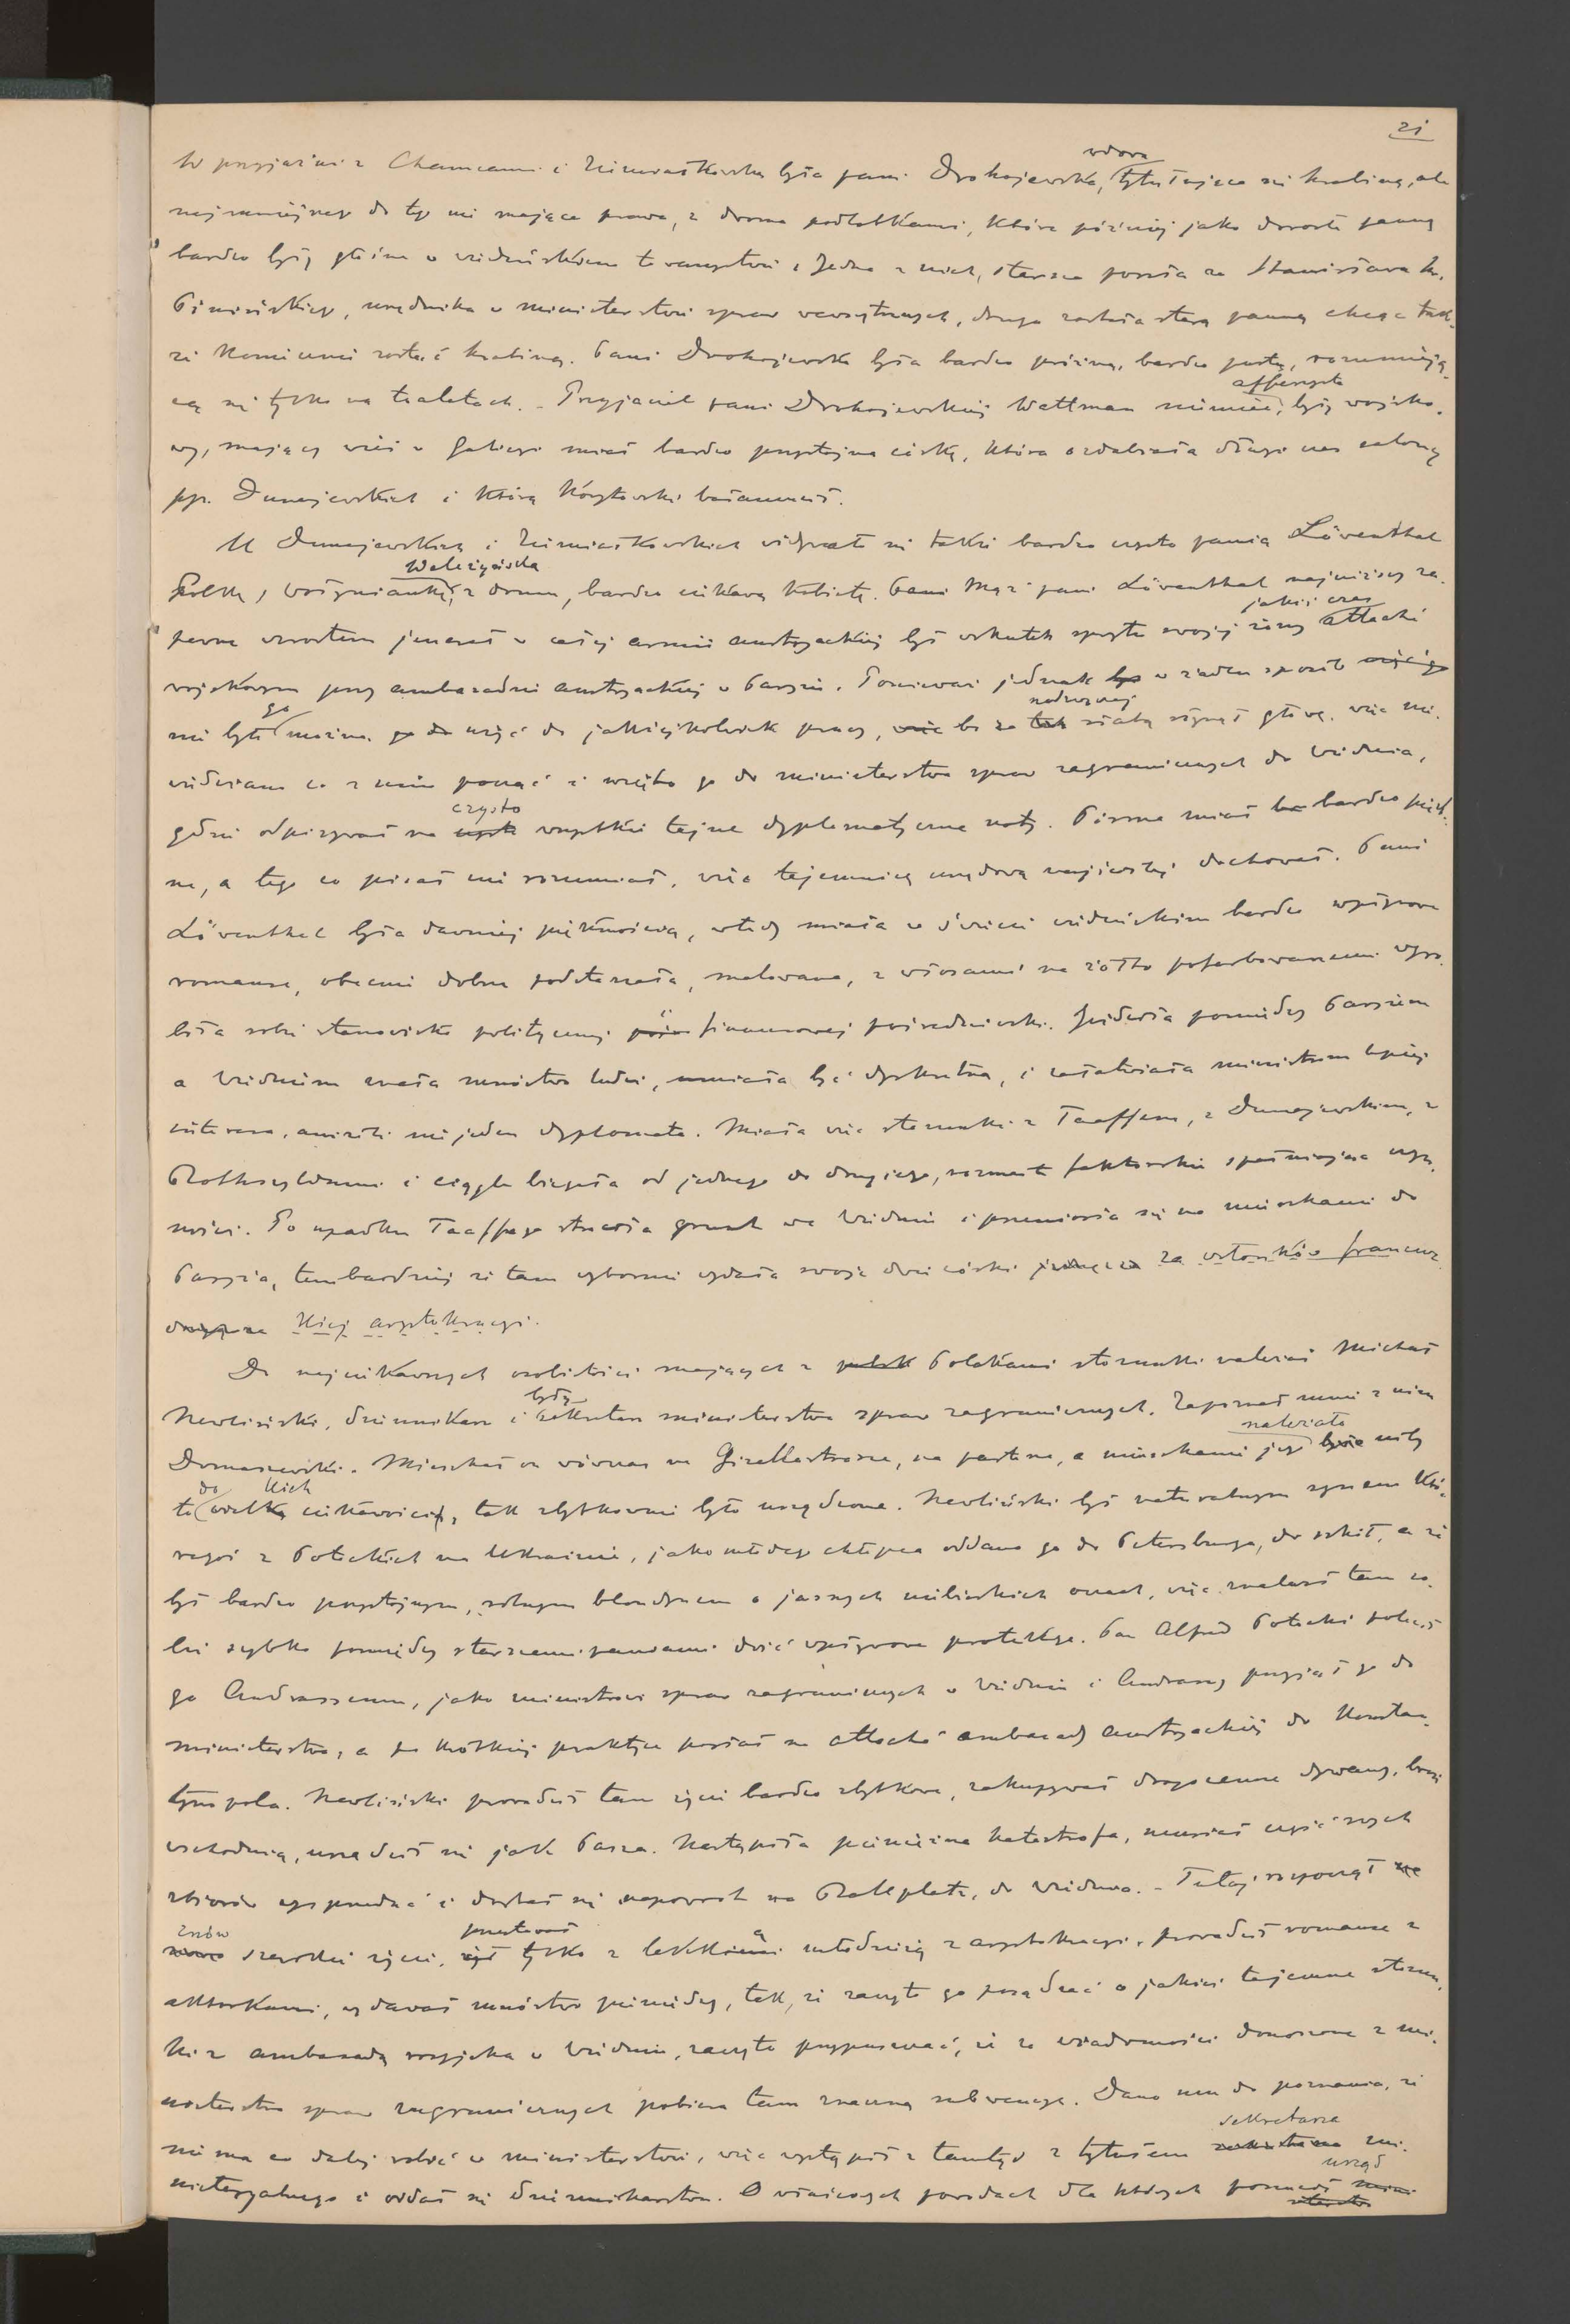 21
W przyjaźni z Chamcami i Ziemiałkowską była pani Drohojewska, wdowa tytułująca się hrabiną, ale
najmniejszego do tego nie mająca prawa, z dwoma podlotkami, które później jako dorosłe panny
bardzo były głośne w wiedeńskiem towarzystwie. Jedna z nich, starsza poszła za Stanisława hr.
Pinińskiego, urzędnika w ministerstwie spraw wewnętrznych, druga została starą panną chcąc tak-
że koniecznie zostać hrabiną. Pani Drohojewska była bardzo próżną, bardzo pustą, rozumieją-
cą się tylko na toaletach. – Przyjaciel pani Drohojewskiej Wattman niemiec, były wojsko-
wy, mający wieś w Galicyi miał bardzo przystojną córkę, która ozdabiała długi czas salony
pp. Dunajewskich i którą Korytowski bałamucił.
U Dunajewskich i Ziemiałkowskich widywało się także bardzo często panią Löventhal
Polkę, Wołyniankę, z domu, bardzo ciekawą kobietę. Pani Mąż pani Löventhal najniższy za-
pewne wzrostem jenerał w całej armii austryackiej był wskutek sprytu swojej żony jakiś czas attaché
wojskowym przy ambasadzie austryackiej w Paryżu. Ponieważ jednak w żaden sposób
nie było go można użyć do jakiejkolwiek pracy, bo za słabą głowę, więc nie
wiedziano co z nim począć i wzięto go do ministerstwa spraw zagranicznych do Wiednia,
gdzie odpisywał na czysto wszystkie tajne dyplomatyczne noty. Pismo miał bardzo pięk-
ne, a tego co pisał nie rozumiał, więc tajemnicę urzędową najściślej dochował. Pani
Löventhal była dawniej pięknością, wtedy miała w świecie wiedeńskim bardzo wpływowe
romanse, obecnie dobrze podstarzała, malowana, z włosami na żółto pofarbowanemi wyro-
biła sobie stanowisko politycznej i finansowej pośredniczki. Jeździła pomiędzy Paryżem
a Wiedniem znała mnóstwo ludzi, umiała być dyskretną, i załatwiała ministrom lepiej
interesa, aniżeli niejeden dyplomata. Miała więc stosunki z Taaffem, z Dunajewskim, z
Rothszyldami i ciągle biegała od jednego do drugiego, rozmaite faktorskie spełniająca czyn-
ności. Po upadku Taaffego straciła grunt we Wiedniu i przeniosła się na mieszkanie do
Paryża, tembardziej że tam wybornie wydała swoje dwie córki za członków francuz
kiej arystokracyi.
Do najciekawszych osobistości mających z Polakami stosunki należał Michał
Newliński, dziennikarz i były sekretarz ministerstwa spraw zagranicznych. Zapoznał mnie z nim
Domaszewski. Mieszkał on wówczas na Gizellastrasse, na parterze, a mieszkanie jego należało
do wielkich ciekawości, tak zbytkownie było urządzone. Newliński był naturalnym synem któ-
regoś z Potockich na Ukrainie, jako młodego chłopca oddano go do Petersburga, do szkół, a że
był bardzo przystojnym, rosłym blondynem o jasnych niebieskich oczach, więc znalazł tam so-
bie szybko pomiędzy starszemi paniami dość wpływowe protekcye. Pan Alfred Potocki polecił
go Andrassemu, jako ministrowi spraw zagranicznych w Wiedniu i Andrassy przyjął go do
ministerstwa, a po krótkiej praktyce posłał na attaché ambasady austryackiej do Konstan-
tynopola. Newliński prowadził tam życie bardzo zbytkowne, zakupywał drogocenne dywany, broń
wschodnią, urządził się jak basza. Nastąpiła pieniężna katastrofa, musiał część swych
zbiorów wyprzedać i dostał się napowrót na Ballplatz, do Wiednia. – Tutaj rozpoczął
znów szerokie życie, przestawał tylko z lekką młodzieżą z arystokracyi, prowadził romanse z
aktorkami, wydawał mnóstwo pieniędzy, tak, że zaczęto go posądzać o jakieś tajemne stosun-
ki z ambasadą rosyjską w Wiedniu, zaczęto przypuszczać, że za wiadomości donoszone z mi-
nisterstwa spraw zagranicznych pobiera tam znaczną subwencyę. Dano mu do poznania, że
nie ma co dalej robić w ministerstwie, więc wystąpił z tamtąd z tytułem sekretarza mi-
nisteryalnego i oddał się dziennikarstwu. O właściwych powodach dla których porzucił urząd